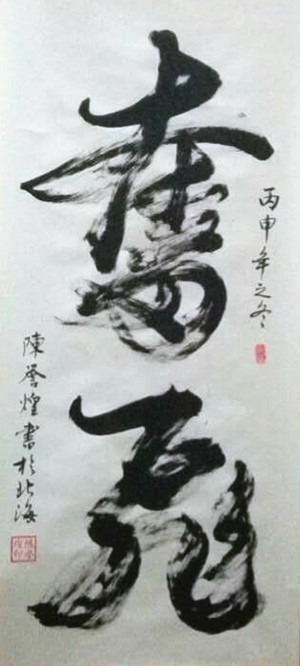 丙申年之冬
奮飛
陳誉煌書於北海